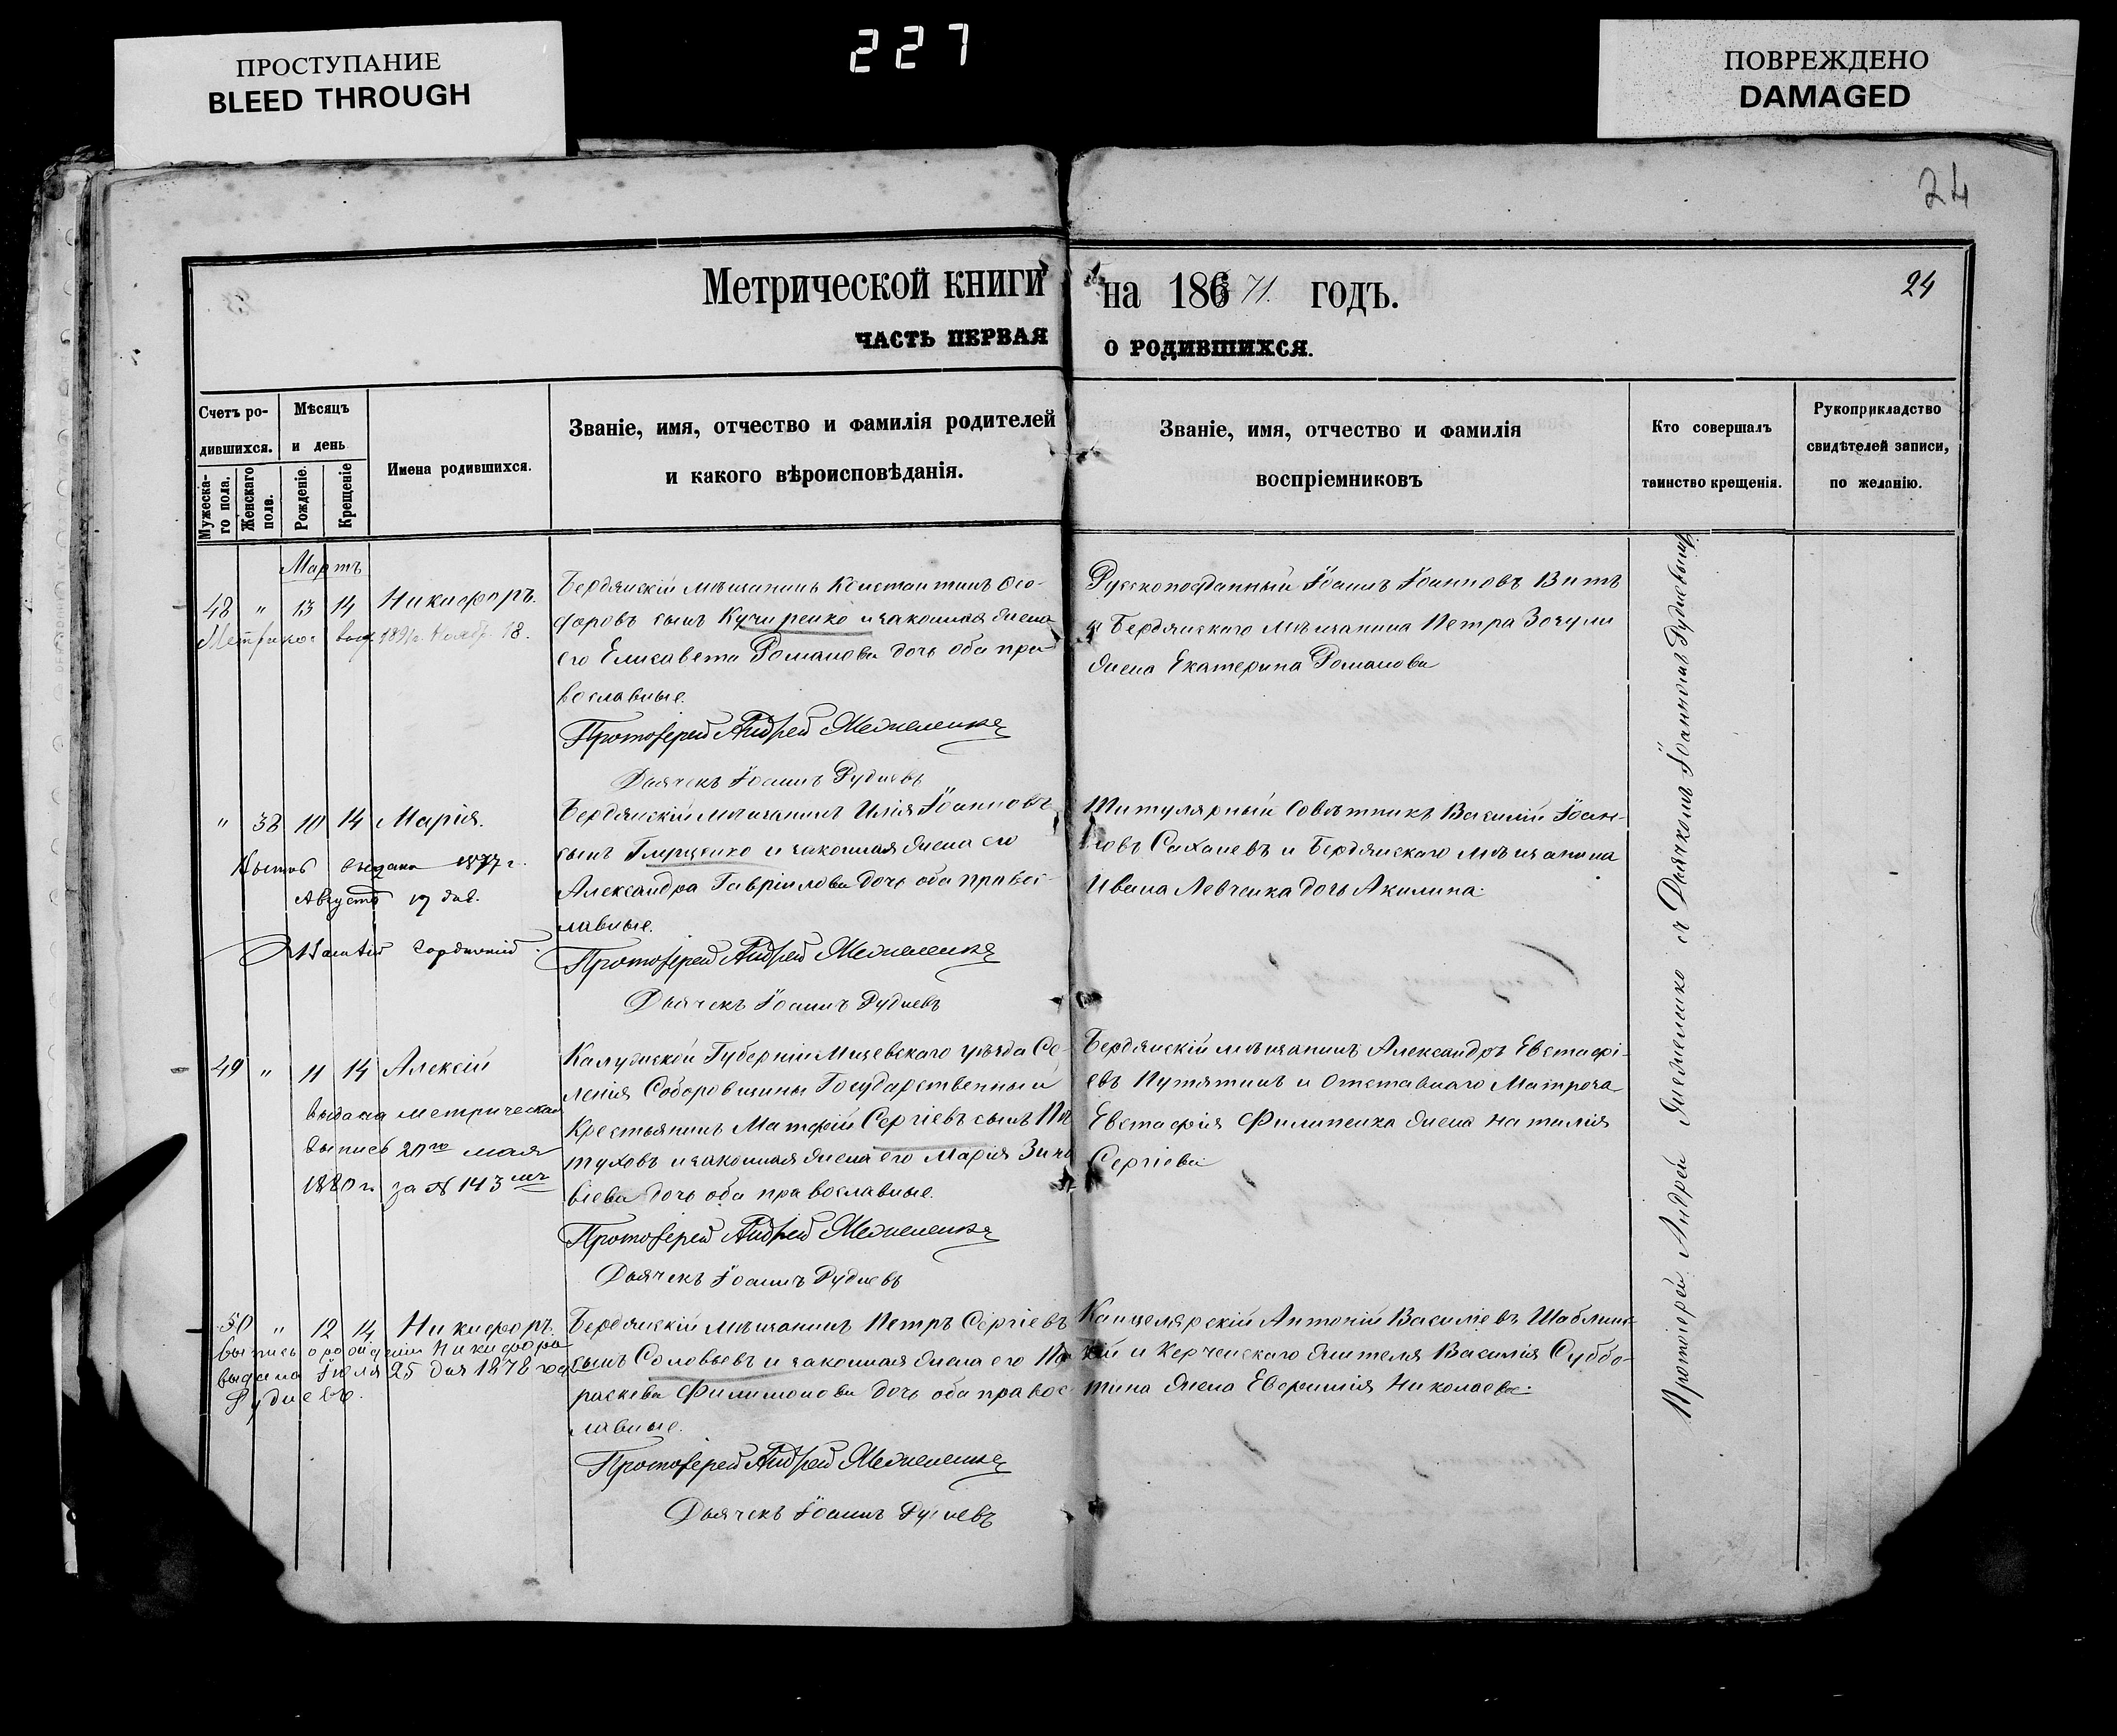 ПРОСТУПАНИЕ
BLEED THROUGH
227
ПОВРЕЖДЕНО
DAMAGED
24
Метрической книги на 186 71. годъ.
24
часть первая о родившихся.
Счетъ ро-
дившихся.
Мужеска-
го пола.
Женскаго
пола.
Мѣсяцъ
и день
Рожденіе.
Крещеніе
Имена родившихся.
Званіе, имя, отчество и фамилія родителей
и какого вѣроисповѣданія.
Званіе, имя, отчество и фамилія
воспріемниковъ
Кто совершалъ
таинство крещенія.
Рукоприкладство
свидѣтелей записи,
по желанію.
Мартъ
48 " 13 14 Никифоръ.
Бердянскій мѣщанинъ Константинъ Ѳео-
доровъ сынъ Кучиренко и законная жена
его Елисавета Романова дочь оба пра-
вославные.
Протоіерей Андрей Межеленко
Дьячекъ Іоаннъ Рудневъ
Русскоподданный Іоаннъ Іоанновъ Витъ
и Бердянскаго мѣщанина Петра Зозули
жена Екатерина Романова
" 38 10 14 Марія.
Выпись выдана 1877 г.
Августа 17 дня.
Бердянскій мѣщанинъ Илія Іоанновъ
сынъ и законная жена его
Александра Гавріилова дочь оба правос-
лавные.
Протоіерей Андрей Межеленко
Дьячекъ Іоаннъ Рудневъ
Титулярный Совѣтникъ Василій Іоан-
новъ Саханевъ и Бердянскаго мѣщанина
Ивана Левченка дочь Акилина.
49 " 11 14 Алексій
выдана метрическая
выпись 20го мая
1880 г. за № 143мъ
Калужской Губерніи Мщевскаго уѣзда Се-
ленія Соборовщины Государственный
Крестьянинъ Матфій Сергіевъ сынъ Пе
туховъ и законная жена его Марія Зино
віева дочь оба православные.
Протоіерей Андрей Межеленко
Дьячекъ Іоаннъ Рудневъ
Бердянскій мѣщанинъ Александръ Евстафі-
евъ Путятинъ и Отставнаго Матроса
Евстафія Филипенка жена Наталія
Сергіева
50 " 12 14 Никифоръ.
выпись о рожденіи Никифора
выдана Іюля 25 дня 1878 года
Рудневъ.
Бердянскій мѣщанинъ Петръ Сергіевъ
сынъ Соловьевъ и законная жена его Па
раскева Филимонова дочь оба правос
лавные.
Протоіерей Андрей Межеленко
Дьячекъ Іоаннъ Рудневъ
Канцелярскій Антоній Василіевъ Шаблин
кій и Керченскаго жителя Василія Суббо-
тина жена Евфимія Николаева.
Протоіерей Андрей Межеленко съ Дьячкомъ Іоанномъ Рудневымъ